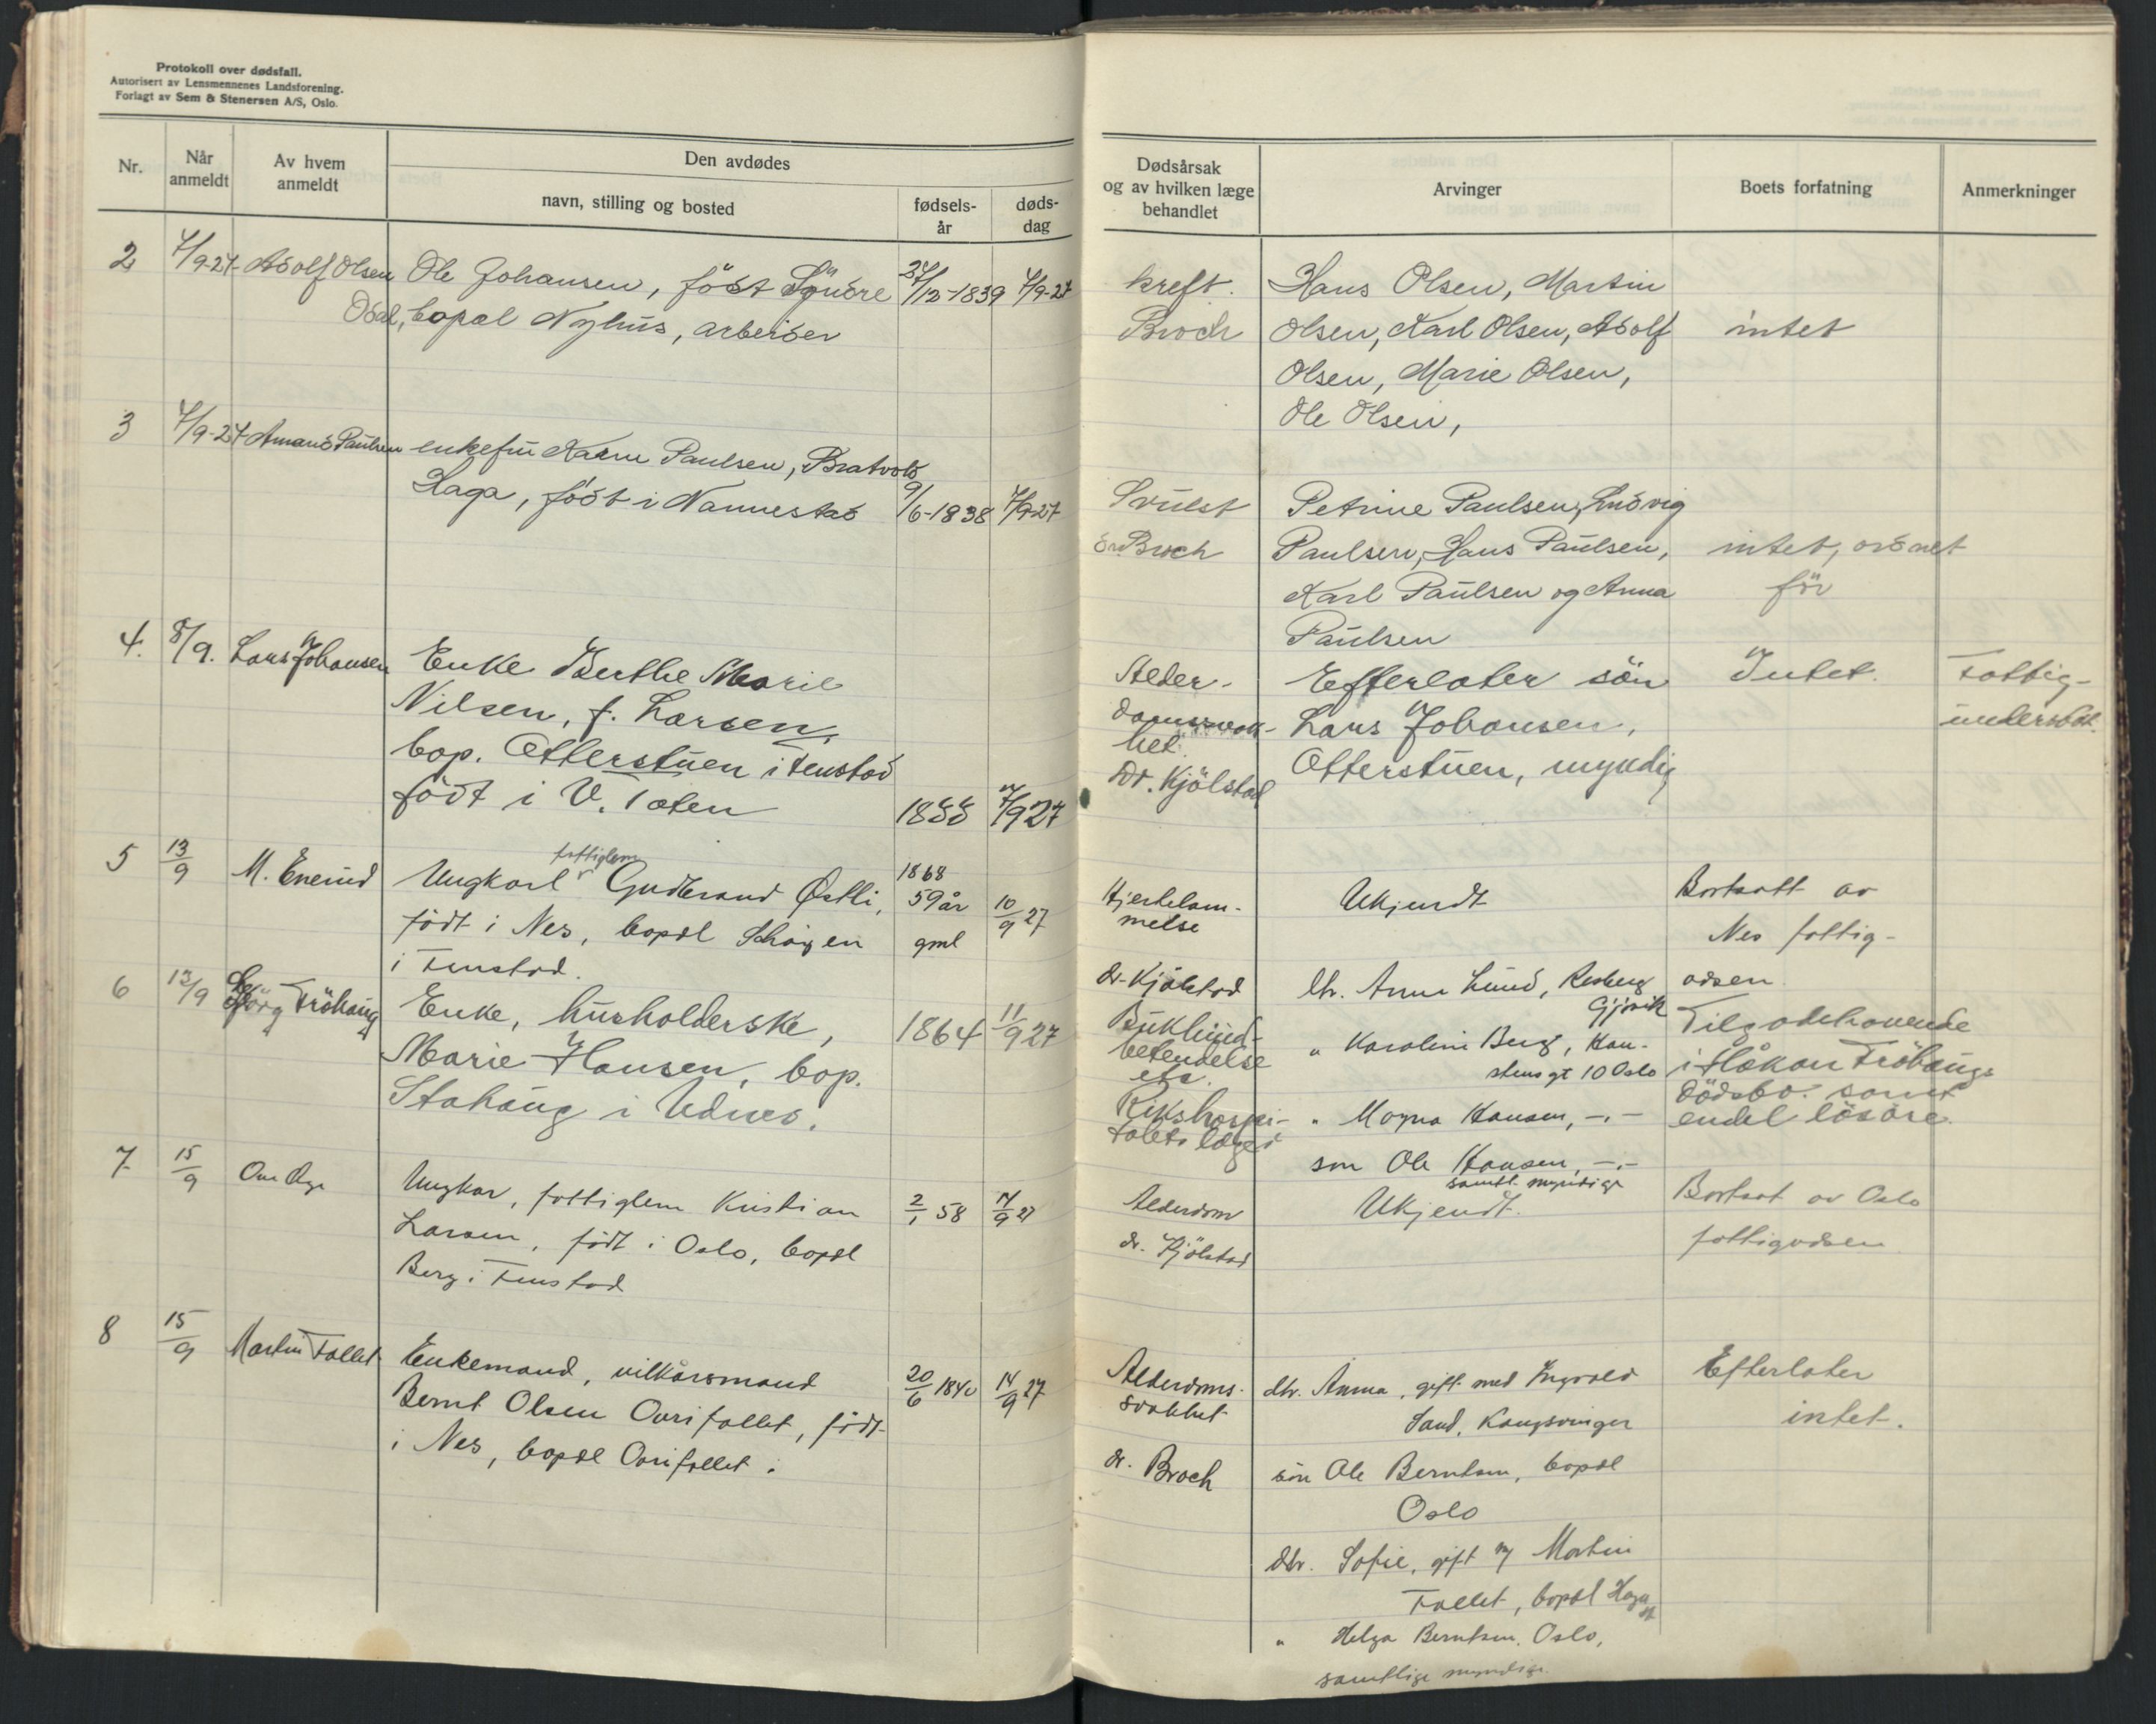 Protokoll over dødsfall.
Autorisert av Lensmennenes Landsforening.
Forlagt av Sem & Stenersen A/S, Oslo.
Nr.
Når anmeldt
Av hvem anmeldt
Den avdødes
navn, stilling og bosted
fødsels-år
døds-dag
Dødsårsak og av hvilken læge behandlet
Arvinger
Boets forfatning
Anmerkninger
2 7/9-27 Adolf Olsen Ole Johansen, födt Söndre 27/12-1839 7/9-27
Odal, bopæl Nyhus, arbeider
kreft.
Broch
Hans Olsen, Martin
Olsen, Karl Olsen, Adolf
Olsen, Marie Olsen,
Ole Olsen,
intet
3 7/9-27 Amand Paulsen enkefru Karen Paulsen, Bratvold
Haga, födt i Nannestad 9/6-1838 7/9-27
Svulst
dr Broch
Petrine Paulsen, Ludvig
Paulsen, Hans Paulsen,
Karl Paulsen og Anna
Paulsen
intet, ordnet
för
4. 8/9. Lars Johansen Enke Berthe Marie
Nilsen, f. Larsen,
bop. Otterstuen i Fenstad
födt i V. Toten 1838 7/9 27
Alder-
domssvak-
het
Dr. Kjölstad
Efterlater sön
Lars Johansen,
Otterstuen, myndig
Intet.
Fattig-
understöt.
5 13/9 M. Enerud Ungkarl fattiglem Gudbrand Østli, 1868
59 år
gml
10/9 27
födt i Nes, bopæl Schøyen
i Fenstad.
Hjertelam-
melse
dr. Kjölstad
Ukjendt
Bortsatt av
Nes fattig-
væsen
6 13/9 Fröhaug Enke, husholderske, 1864 11/9 27
Marie Hansen, bop.
Stahaug i Udnes.
Bukhind-
betendelse
etc.
Rikshospi-
talets læger
dtr. Anna Lund,
Gjøvik
" Karoline Berg, Han-
stens gt 10 Oslo
" Magna Hansen, -"-
søn Ole Hansen, -"-
samtl. myndige
Tilgodehavende
i Håkon Fröhaugs
dödsbo. samt
endel lösöre.
7 15/9 Ungkar, fattiglem Kristian 2/1 58 14/9 27
Larsen, födt i Oslo, bopæl
Berg i Fenstad
Alderdom
dr. Kjölstad
Ukjendt.
Bortsat av Oslo
fattigvæsen
8 15/9 Martin Fallet Enkemand, vilkårsmand 20/6 1840 14/9 27
Bernt Olsen Ovrifallet, födt
i Nes, bopæl Ovrifallet.
Alderdoms-
svakhet
dr. Broch
dtr. Anna, gift med Ingvald
Sand, Kongsvinger
sön Ole Berntsen, bopæl
Oslo
dtr. Sofie, gift m/ Martin
Fallet, bopæl Haga st
" Helga Berntsen, Oslo,
samtlige myndige.
Efterlater
intet.